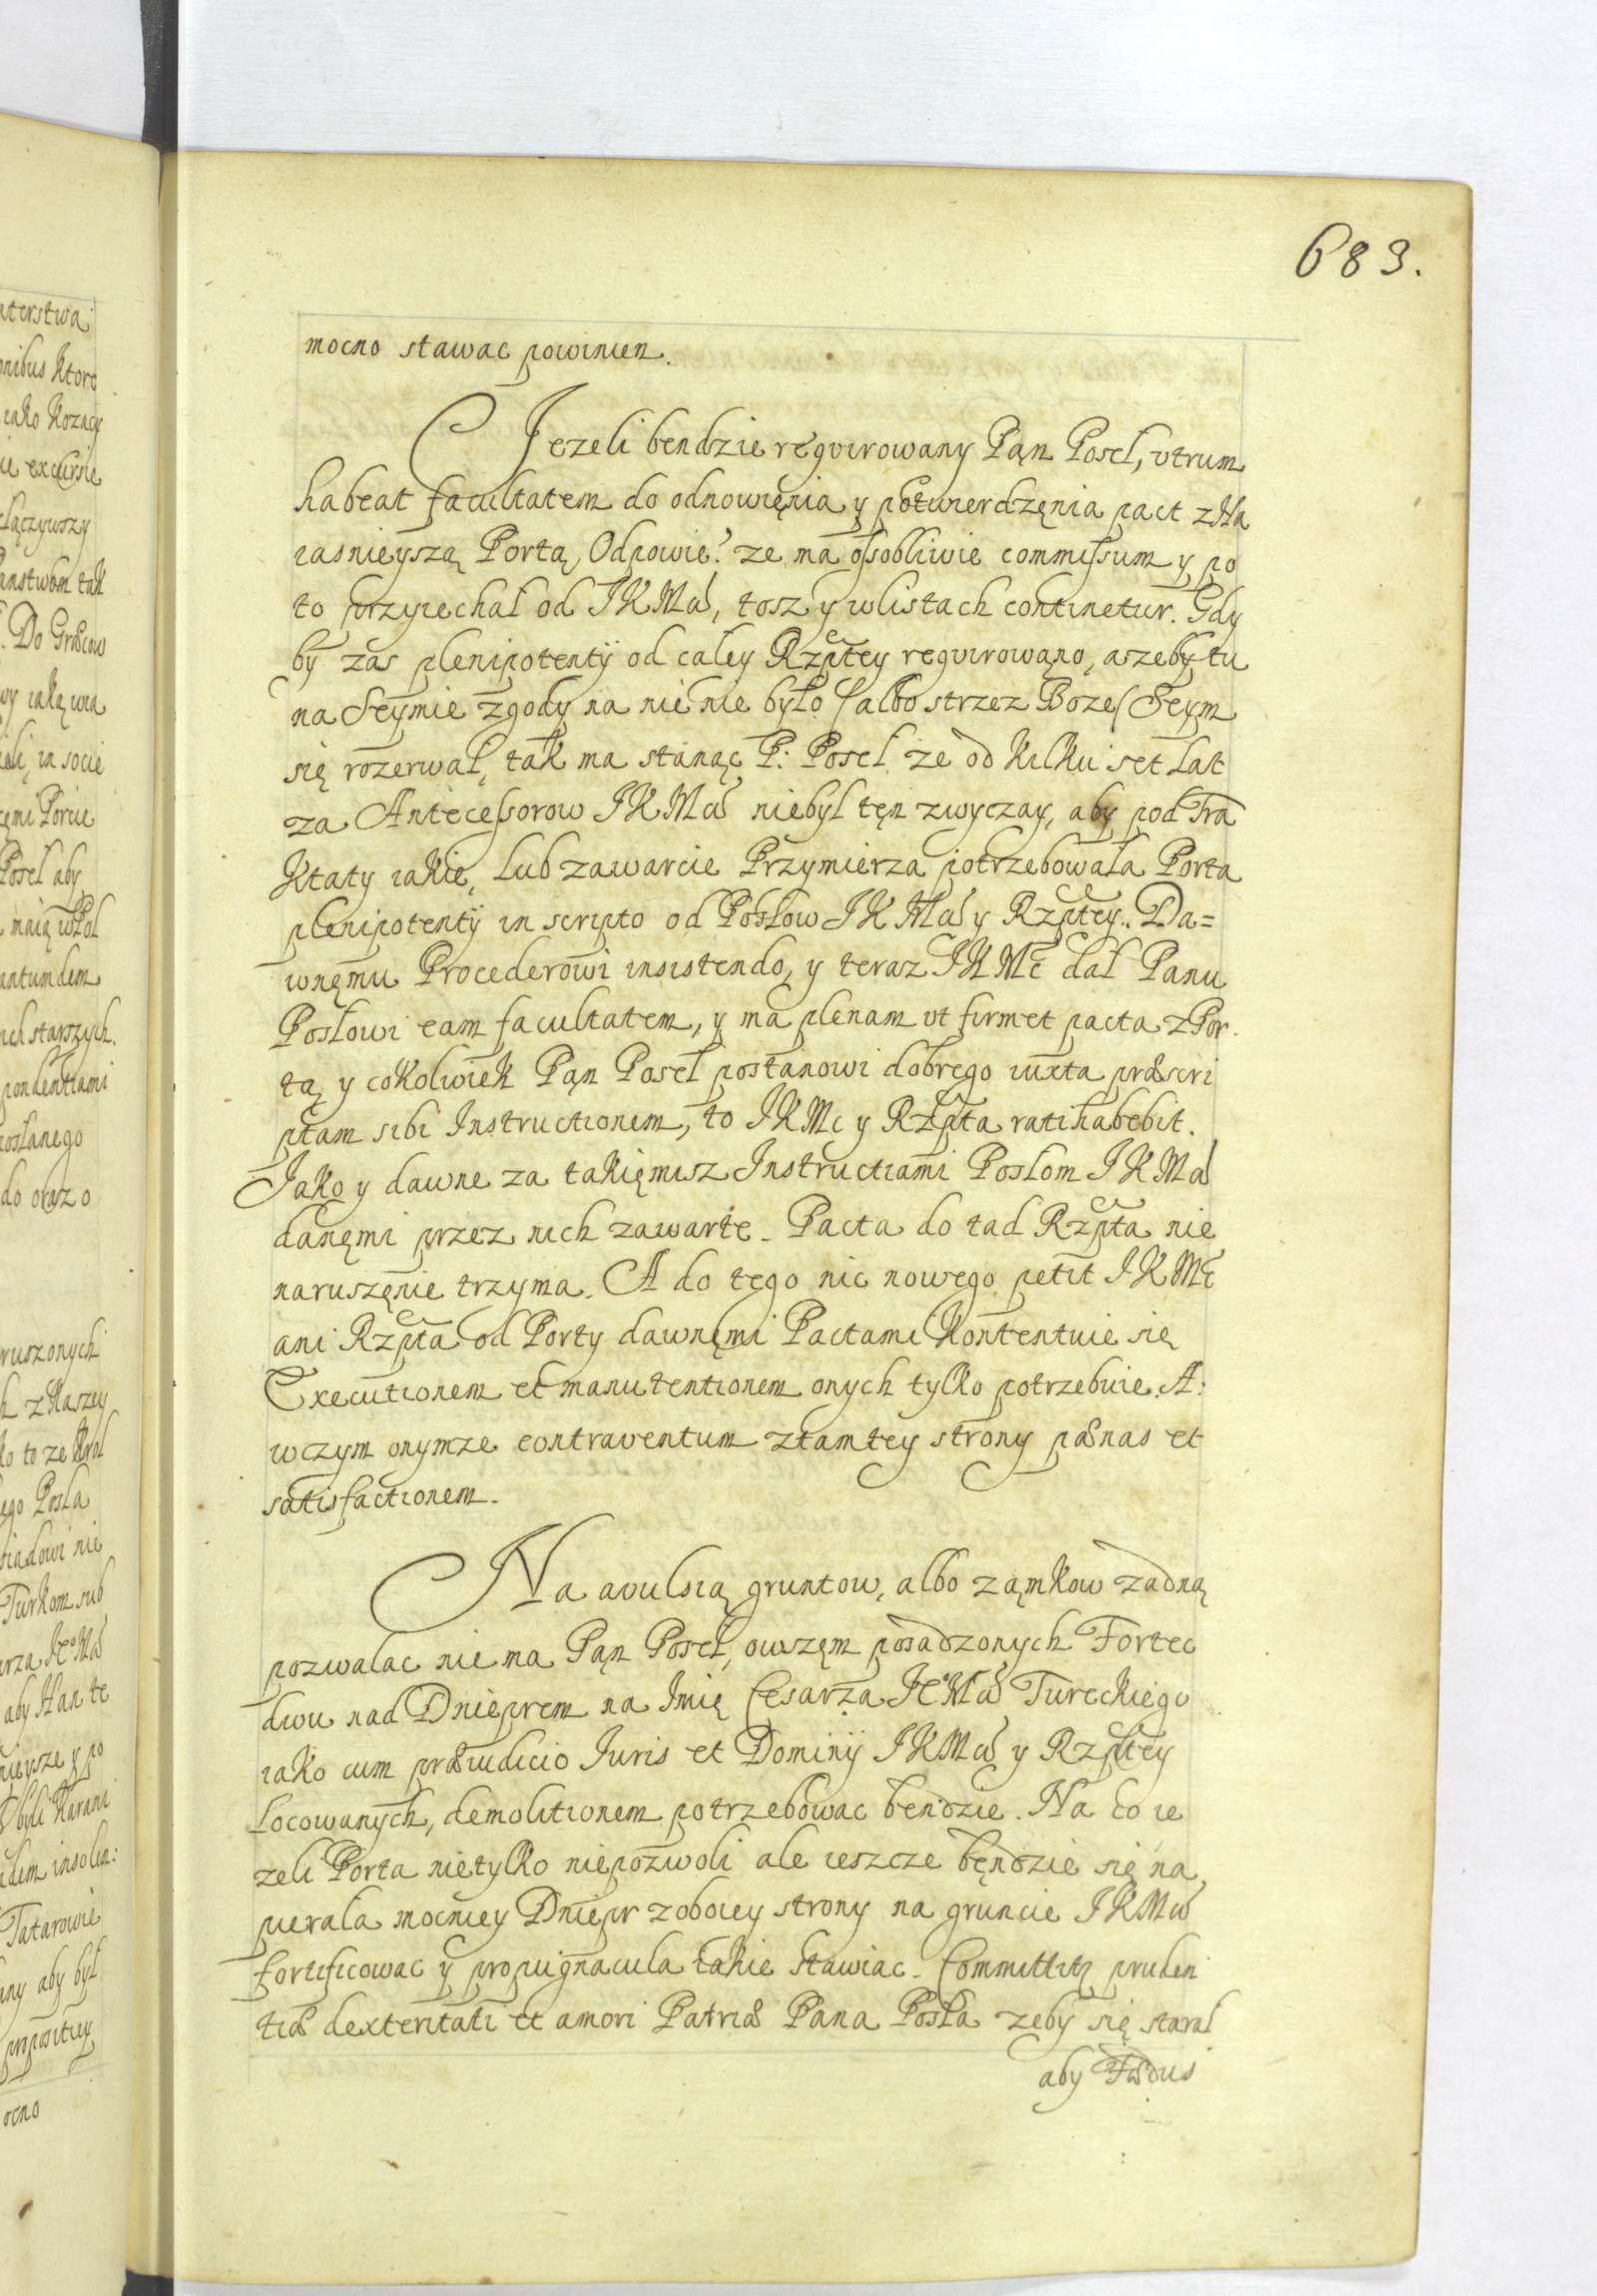 683.
mocno stawac powinien.
Jezeli bendzie reqvirowany Pąn Posel, vtrum
habeat facultatem do odnowięnia y potwierdzęnia pact z Na
iasnieyszą Portą, Odpowie? ze ma ossobliwie commissum y po
to przyiechał od JKMći, tosz y w listach continetur. Gdy
by zas plenipotentÿ od caley Rzptey reqvirowąno, a zeby tu
na Seymie zgody na nie nie było (albo strzez Boze) Seym
się rozerwał, tak ma stanąc P: Posel ze od kilku set Lat
za Antecessorow JKMći niebył tęn zwyczay, aby pod Tra
ktaty iakie, lub zawarcie Przymierza potrzebowała Porta
plenipotentÿ in scripto od Posłow JKMći y Rzptey. Da=
wnęmu Procederowi insistendo, y teraz JKMć dał Panu
Posłowi eam facultatem, y ma plenam vt firmet pacta z Por.
tą y cokolwiek Pąn Poseł postanowi dobrego iuxta præscri
ptam sibi Instructionem, to JKMć y Rzpta ratihabebit.
Jako y dawne za takięmisz Instructiami Posłom JKMći
danęmi przez nich zawarte. Pacta do tad Rzpta nie
naruszęnie trzyma. A do tego nic nowego petit JKMć
ani Rzpta od Porty dawnęmi Pactami kontentuie się
Executionem et manutentionem onych tylko potrzebuie. A:
w czym onymze contraventum z tamtey strony pænas et
satisfactionem.
Na avulsią gruntow, albo ząmkow zadną
pozwalac nie ma Pąn Poseł, owszęm posadzonych Fortec
dwu nad Dnieprem na Imię Cesarza JeoMći Tureckiego
iako cum præiudicio Iuris et Dominÿ JKMći y Rzptey
locowanych, demolitionem potrzebowac bendzie. Na co ie
zeli Porta nietylko niepozwoli ale ieszcze będzie się na
pierala mocniey Dniepr z oboiey strony na gruncie JKMći
fortificowac y propugnacula takie stawiac. Committitr pruden
tiæ dexteritati et amori Patriæ Pana Posła zeby się starał
aby Fœdus